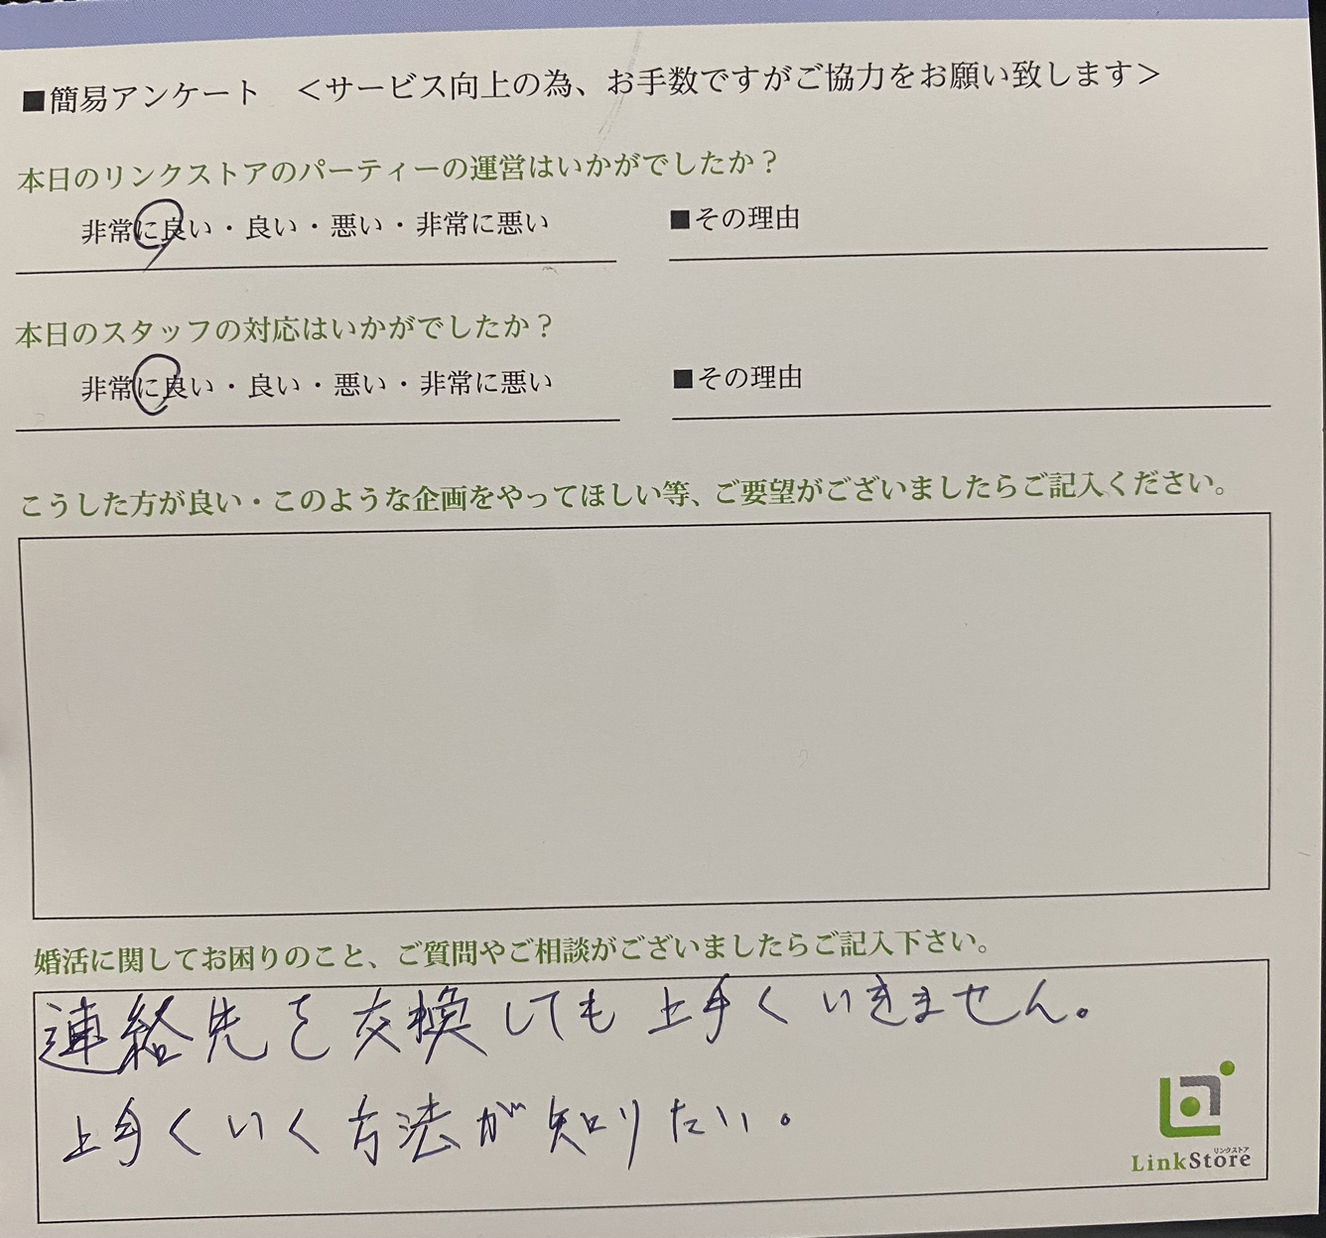 ■簡易アンケート　＜サービス向上の為、お手数ですがご協力をお願い致します＞
本日のリンクストアのパーティーの運営はいかがでしたか？
非常に良い・良い・悪い・非常に悪い　■その理由
本日のスタッフの対応はいかがでしたか？
非常に良い・良い・悪い・非常に悪い　■その理由
こうした方が良い・このような企画をやってほしい等、ご要望がございましたらご記入ください。
婚活に関してお困りのこと、ご質問やご相談がございましたらご記入下さい。
連絡先を交換しても上手くいきません。
上手くいく方法が知りたい。
リンクストア
LinkStore